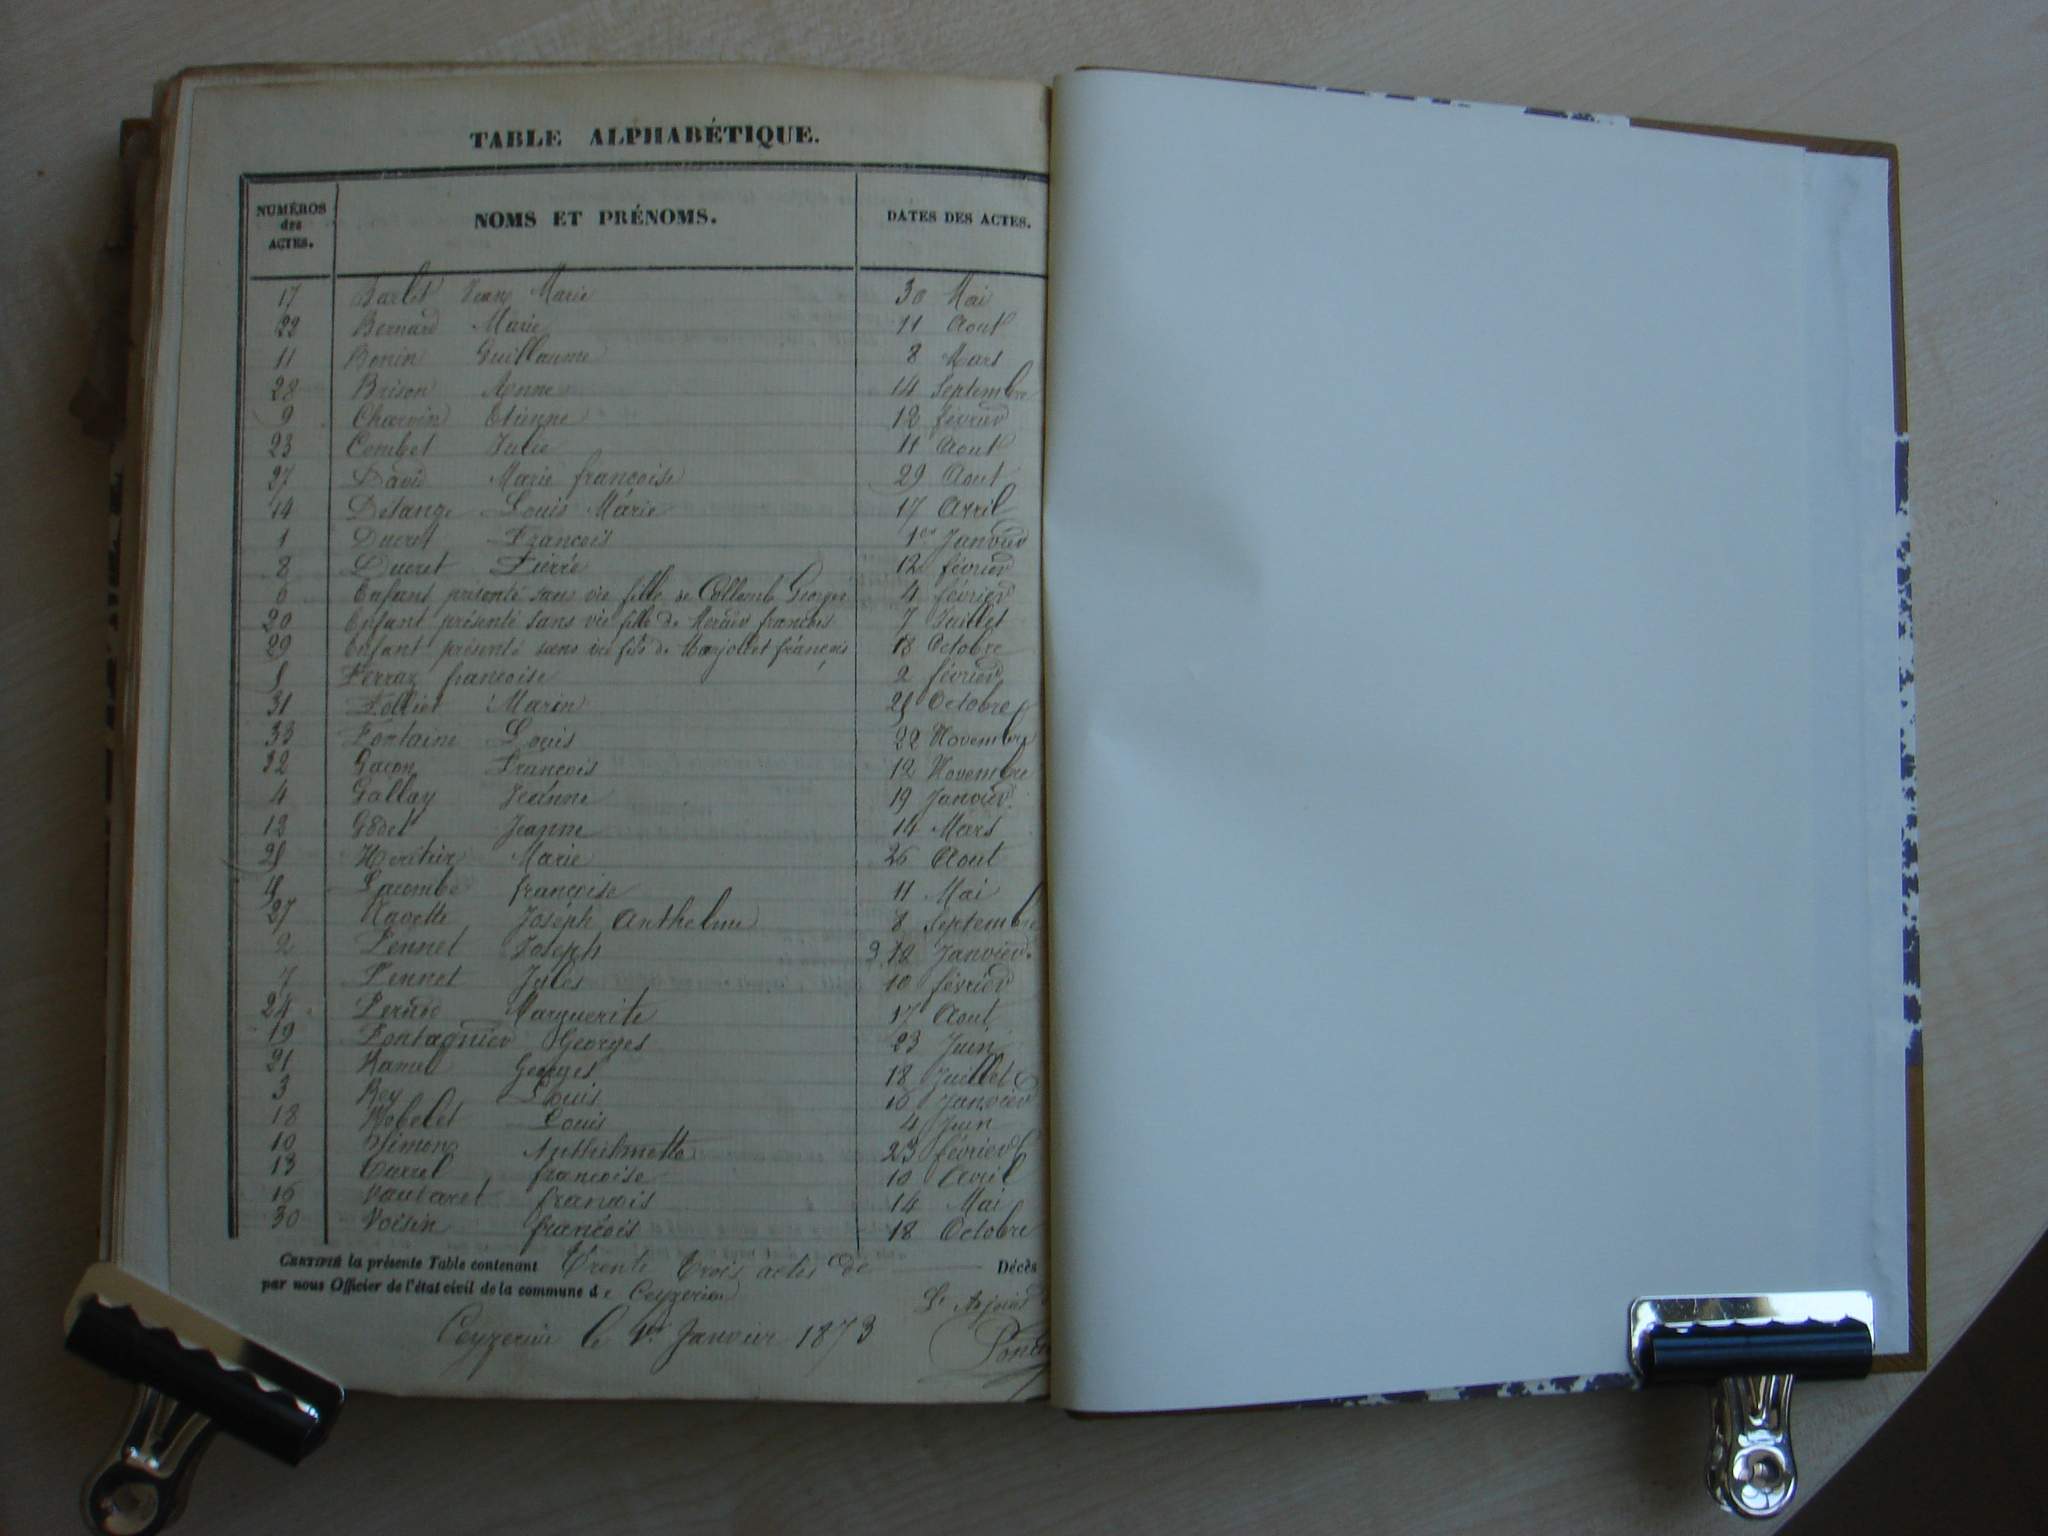 TABLE ALPHABÉTIQUE.
NUMÉROS des ACTES. NOMS ET PRÉNOMS. DATES DES ACTES.
17 Barlet Jean Marie 30 Mai
22 Bernard Marie 11 Aout
11 Bonin Guillaume 8 Mars
28 Brison Anne 14 Septembre
9 Charvin Etienne 12 février
23 Combet Julie 11 Aout
David Marie françoise 29 Aout
14 Détange Louis Marie 17 Avril
1 Ducret François 1er Janvier
8 Ducret Pierre 12 février
6 Enfant présenté sans vie fille de Collomb Georges 4 février
20 Enfant présenté sans vie fille de Mercier françois 7 Juillet
29 Enfant présenté sans vie fils de Marjollet françois 13 Octobre
5 Ferraz françoise 2 février
31 Folliet Marin 25 Octobre
33 Fontaine Louis 22 Novembre
32 Gacon François 12 Novembre
4 Gallay Jeanne 19 Janvier
12 Godet Jeanne 14 Mars
25 Heritier Marie 26 Aout
15 Lacombe françoise 11 Mai
27 Navette Joseph Anthelme 8 Septembre
2 Pennet Joseph 12 Janvier
7 Pennet Jules 10 février
24 Marguerite 17 Aout
19 Pontagnier Georges 23 Juin
21 Ramel Georges 18 Juillet
3 Rey Louis 16 Janvier
18 Robelet Louis 4 Juin
10 Simon Anthelmette 23 février
13 Turrel françoise 10 Avril
16 Vautaret françois 14 Mai
30 Voisin françois 18 Octobre
CERTIFIÉ la présente Table contenant Trente trois actes de Décès
par nous Officier de l'état civil de la commune de Ceyzerieu
Le Adjoint
Ceyzerieu le 1er Janvier 1873